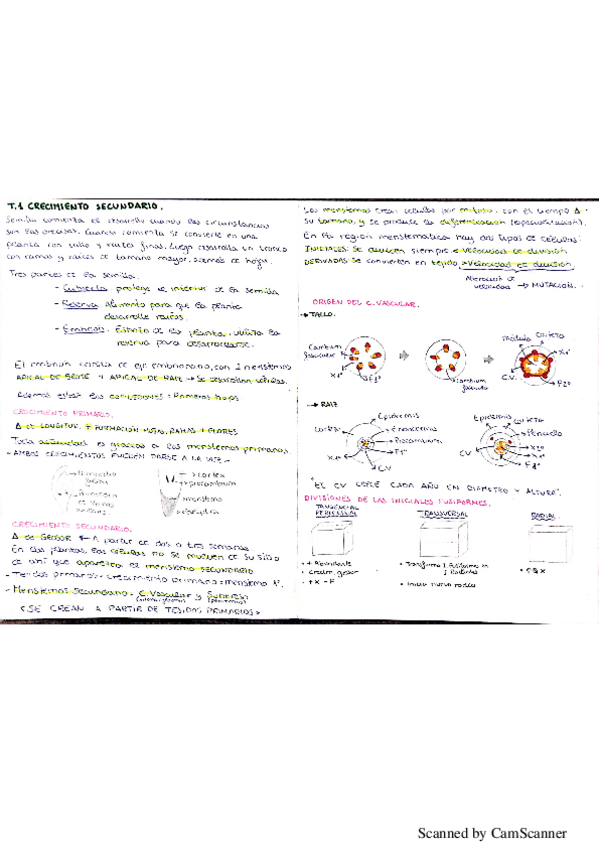 T.1 CRECIMIENTO SECUNDARIO.
Semilla comienza el desarrollo cuando las circunstancias
son las Cuando comienza se convierte en una
plantita con tallo y raíces finas, luego desarrolla un tronco
con ramas y raíces de tamaño mayor, además de hojas.
Tres partes de la semilla.
- Cubierta protege el interior de la semilla
- Reserva Alimento para que la planta
desarrolle raíces.
- Embrión. de la planta, utiliza la
reserva para desarrollarse.
El embrión consta de eje embrionario, con 2 meristemos
APICAL DE BROTE Y APICAL DE RAIZ → Se desarrollan células.
Además están los COTILEDONES: Primeras hojas
CRECIMIENTO PRIMARIO.
Δ de LONGITUD, + FORMACIÓN HOJAS, RAMAS Y FLORES
Toda actividad es gracias a los meristemos primarios.
- AMBOS CRECIMIENTOS PUEDEN DARSE A LA VEZ -
→ cortex
→ procambium
meristemo
CRECIMIENTO SECUNDARIO.
Δ de GROSOR ← A partir de dos o tres semanas
En las plantas las células no se mueven de su sitio
de ahí que aparezca el meristemo SECUNDARIO
- Tejidos primarios - crecimiento primario = meristemo 1º.
- Meristemos Secundario. C. Vascular y Suberoso
<SE CREAN A PARTIR DE TEJIDOS PRIMARIOS>
Los meristemos crean células por mitosis, con el tiempo Δ
su tamaño, y se produce la diferenciación (especialización).
En la región meristemática hay dos tipos de células:
INICIALES: Se dividen siempre < velocidad de división
DERIVADAS Se convierten en tejido > velocidad de división
Alteración de
velocidades → MUTACIÓN.
ORIGEN DEL C. VASCULAR.
→ TALLO.
Cambium
fascicular
X1º
F1º
Cambium
fascicular
médula
CORTEX
X1º
C.V.
F2º
→ RAIZ
Cortex
Epidermis
Endodermis
Procambium
F1º
X1º
CV
Epidermis
CORTEX
Periciclo
CV
X2º
X1º
F2º
"EL CV CRECE CADA AÑO EN DIÁMETRO Y ALTURA".
DIVISIONES DE LAS INICIALES FUSIFORMES.
TANGENCIAL
PERICLINAL
TRANSVERSAL
RADIAL
• + Abundante
• Crecim. grosor
• + X - F
• Transforma 1 fusiforme en
radiales
• Inicia nuevo radio
Scanned by CamScanner